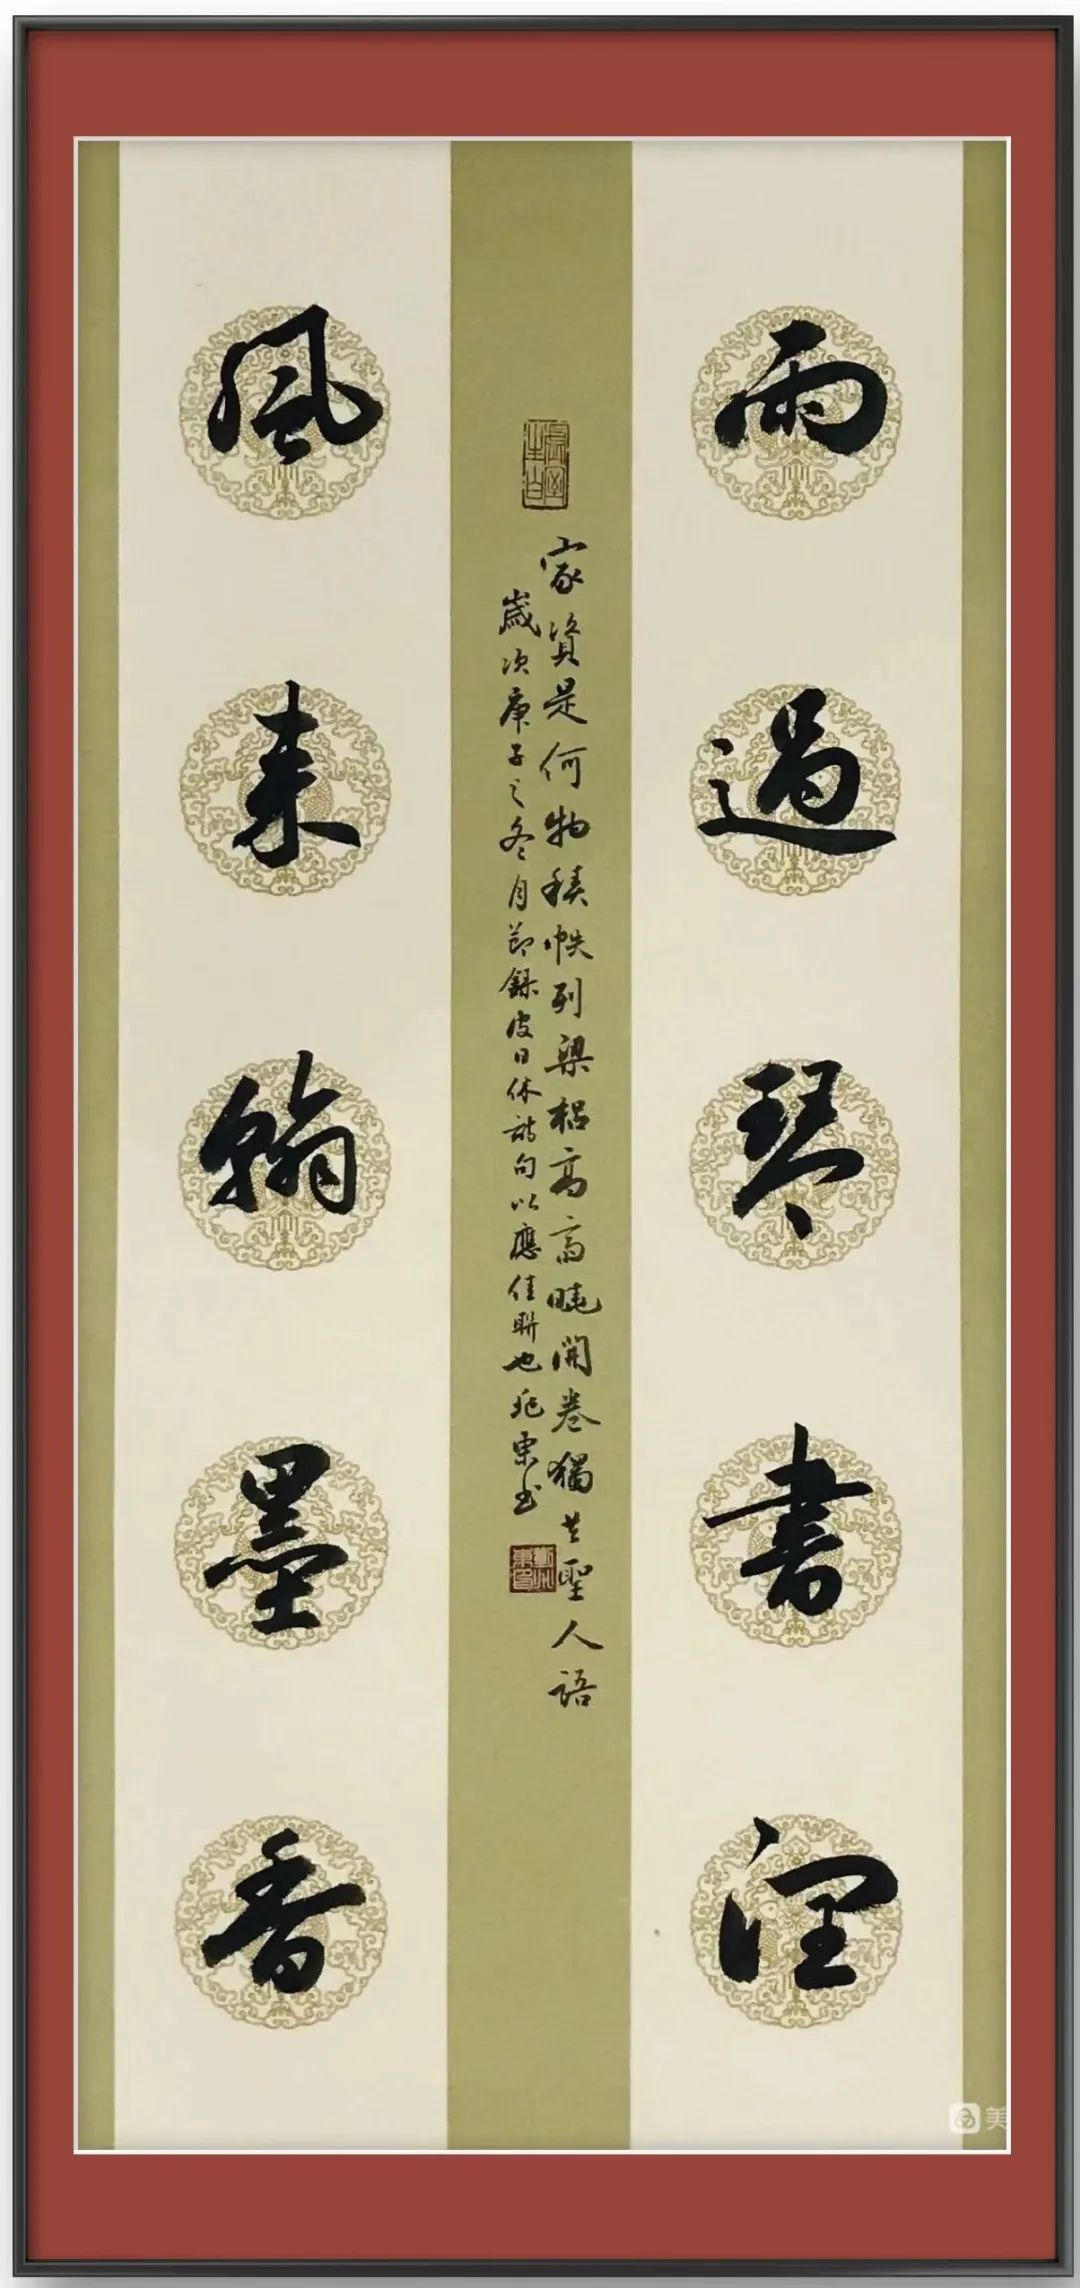 雨過琴書潤
家資是何物積帙列梁梠高齋曉開卷獨共聖人語
歲次庚子之冬月節錄皮日休詩句以應佳聯也兆東書
風來翰墨香
美